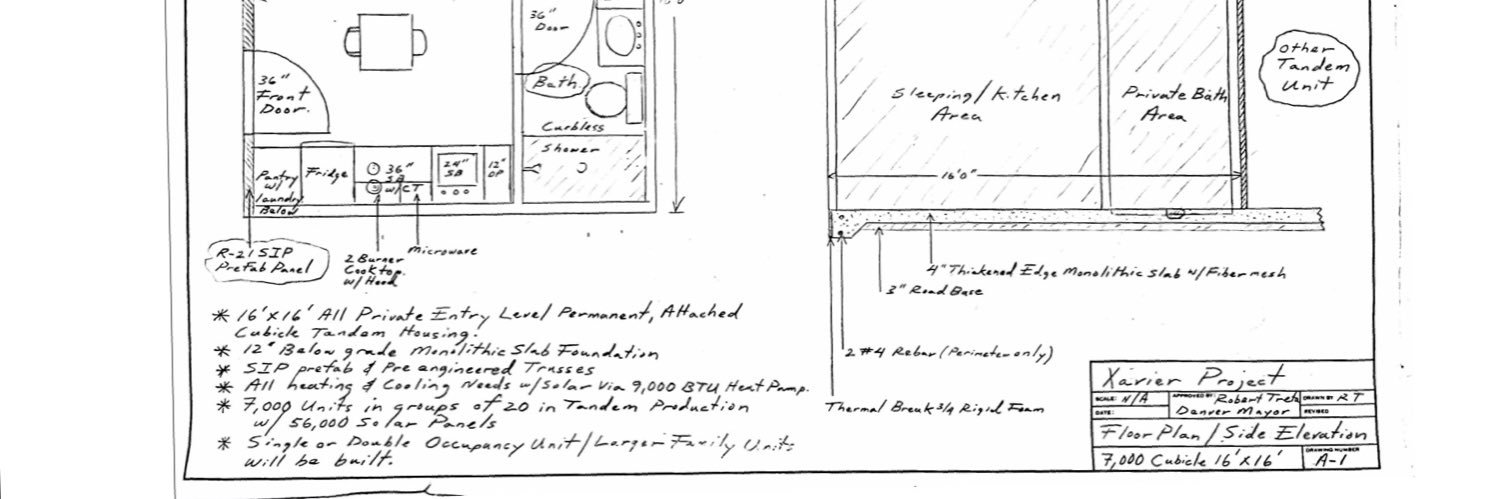 36"
Door
36"
Front
Door.
Bath
Curbless
Shower
Pantry
w/
laundry
Below
Fridge
36"
SB
w/CT
24"
SB
12"
R-21 SIP
Prefab Panel
2 Burner
Cooktop
w/Hood
Microwave
Sleeping/Kitchen
Area
Private Bath
Area
Other
Tandem
Unit
16'0"
4" Thickened Edge Monolithic Slab w/Fibermesh
3" Road Base
2 #4 Rebar (Perimeter only)
Thermal Break 3/4 Rigid Foam
* 16'x16' All Private Entry Level Permanent, Attached
Cubicle Tandem Housing.
* 12" Below grade Monolithic Slab Foundation
* SIP prefab & Pre engineered Trusses
* All heating & Cooling Needs w/Solar Via 9,000 BTU Heat Pump.
* 7,000 Units in groups of 20 in Tandem Production
w/ 56,000 Solar Panels
* Single or Double Occupancy Unit/Larger Family Units
will be built.
Xavier Project
SCALE: N/A APPROVED BY: Robert Treta DRAWN BY RT
DATE: Denver Mayor REVISED
Floor Plan / Side Elevation
7,000 Cubicle 16'x16' DRAWING NUMBER
A-1